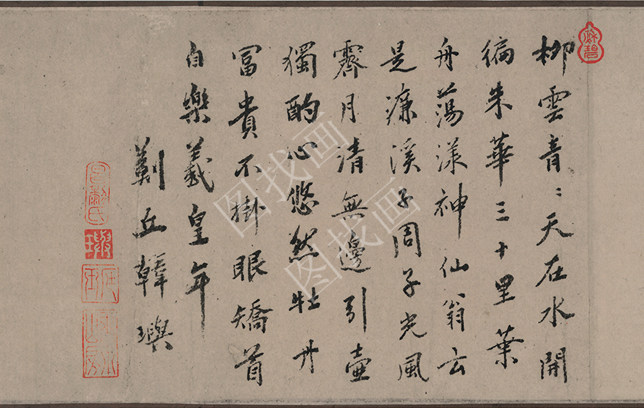 柳雲青〻天在水開
徧朱華三十里葉
舟蕩漾神仙翁云
是濂溪子周子光風
霽月清無邊引壺
獨酌心悠然牡丹
冨貴不掛眼矯首
自樂羲皇年
薊丘韓璵
图找画
图找画